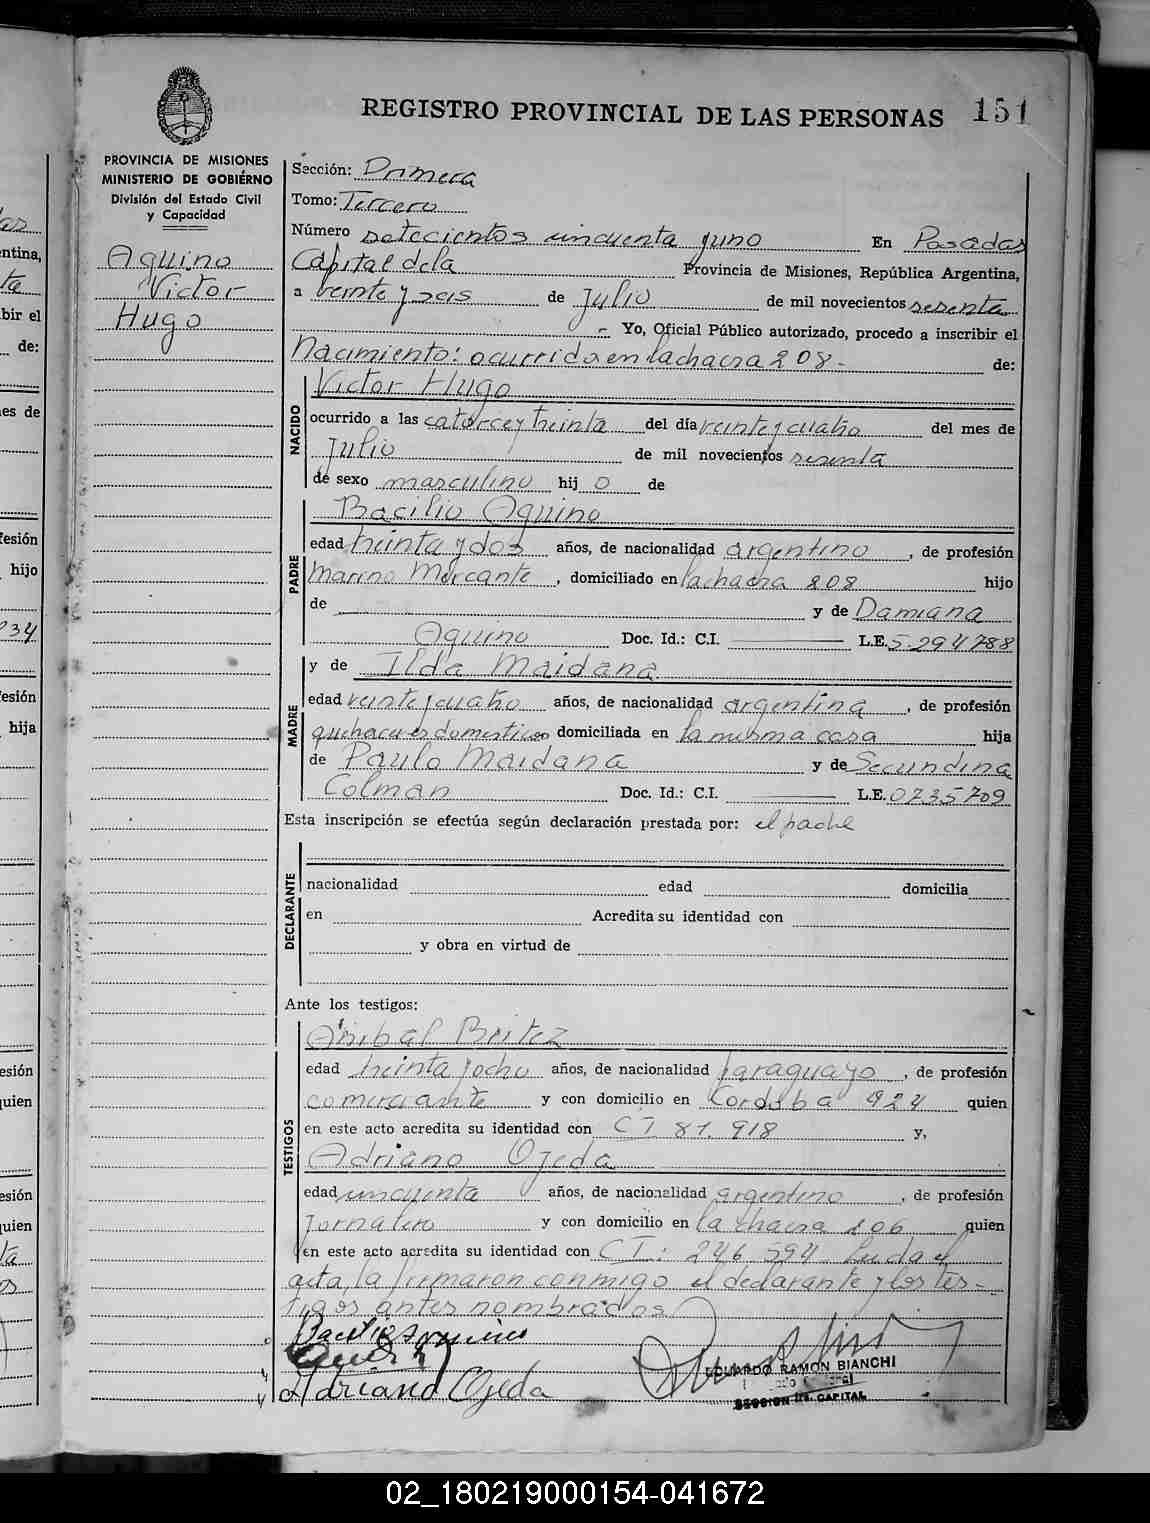 REGISTRO PROVINCIAL DE LAS PERSONAS 151
PROVINCIA DE MISIONES
MINISTERIO DE GOBIERNO
División del Estado Civil
y Capacidad
Aquino
Victor
Hugo
Sección: Primera
Tomo: Tercero
Número setecientos cincuenta y uno En Posadas
Capital de la Provincia de Misiones, República Argentina,
a veinte y seis de Julio de mil novecientos sesenta
Yo, Oficial Público autorizado, procedo a inscribir el
Nacimiento: ocurrido en la chacra 208 - de:
Victor Hugo
NACIDO
ocurrido a las catorce y treinta del día veinte y cuatro del mes de
Julio de mil novecientos sesenta
de sexo masculino hij o de
Bacilio Aquino
PADRE
edad treinta y dos años, de nacionalidad argentino, de profesión
Marino Mercante, domiciliado en la chacra 208 hijo
de y de Damiana
Aquino Doc. Id.: C.I. L.E. 5.294788
y de Ilda Maidana
MADRE
edad veinte y cuatro años, de nacionalidad argentina, de profesión
quehaceres domesticos domiciliada en la misma casa hija
de Paulo Maidana y de Secundina
Colman Doc. Id.: C.I. L.E. 0735709
Esta inscripción se efectúa según declaración prestada por: el padre
DECLARANTE
nacionalidad edad domicilia
en Acredita su identidad con
y obra en virtud de
Ante los testigos:
TESTIGOS
Anibal Britez
edad treinta y ocho años, de nacionalidad paraguayo, de profesión
comerciante y con domicilio en Cordoba 924 quien
en este acto acredita su identidad con CI. 81.918 y,
Adriano Ojeda
edad cincuenta años, de nacionalidad argentino, de profesión
Jornalero y con domicilio en la chacra 206 quien
en este acto acredita su identidad con CI: 246.594 Leida el
acta, la firmaron conmigo el declarante y los tes-
tigos antes nombrados
Adriano Ojeda
EDUARDO RAMON BIANCHI
SECCION 1ra. CAPITAL
ntina,
bir el
de:
es de
esión
hijo
234
esión
hija
esión
quien
esión
quien
02_180219000154-041672